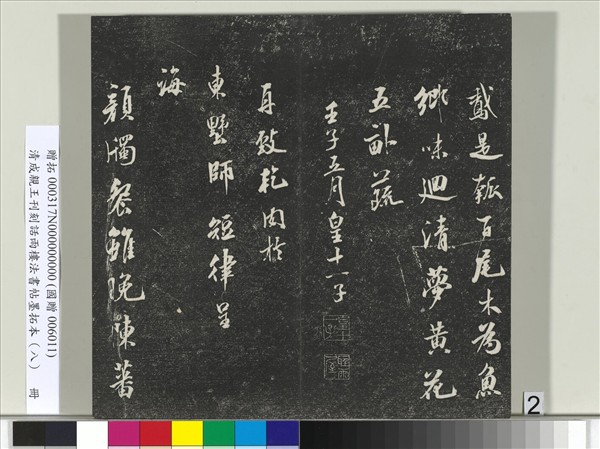 鵞是瓠百尾木為魚
鄉味迴清夢黃花
五畝蔬
壬子五月皇十一子
再致乾肉於
東墅師短律呈
誨
顏斶餐雖晚陳蕃
贈拓 000317N000000000 (國贈 006011)
清成親王刊刻話雨樓法書帖墨拓本（八） 冊
2